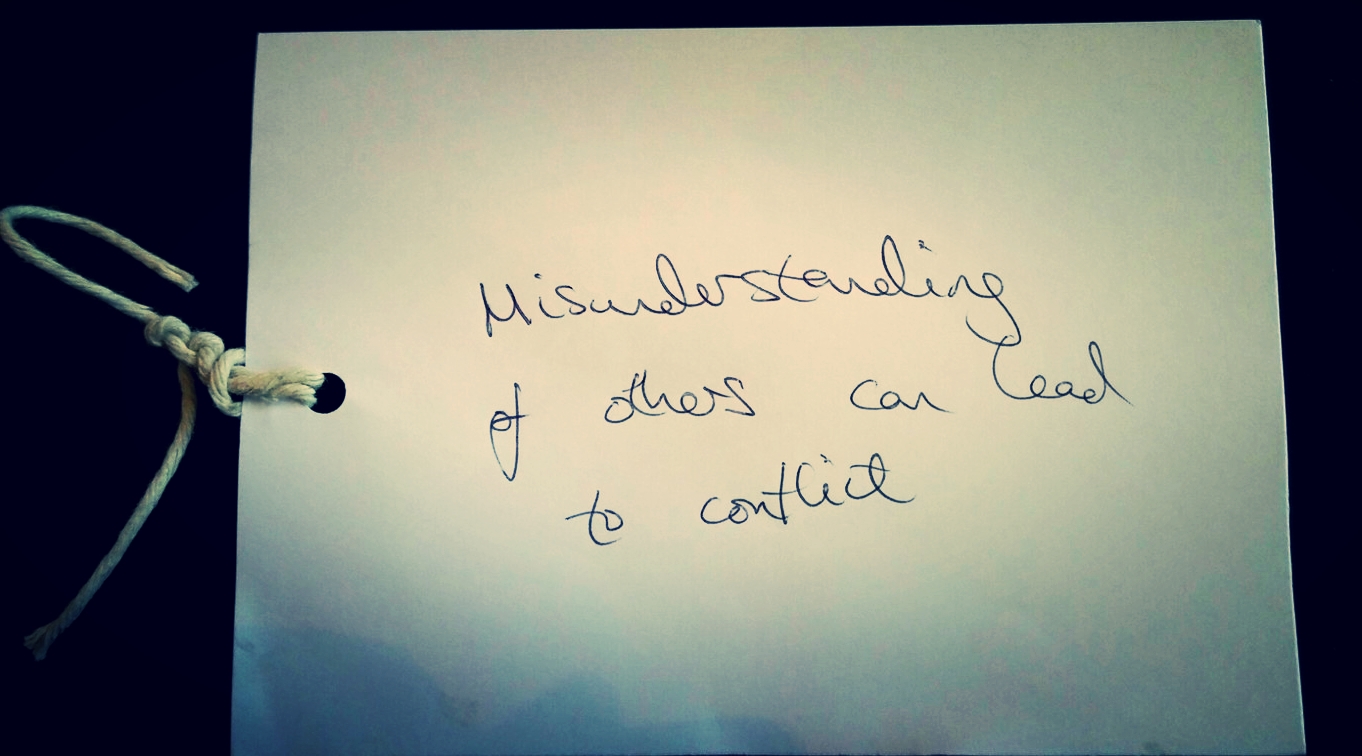 Misunderstanding
of others can lead
to conflict